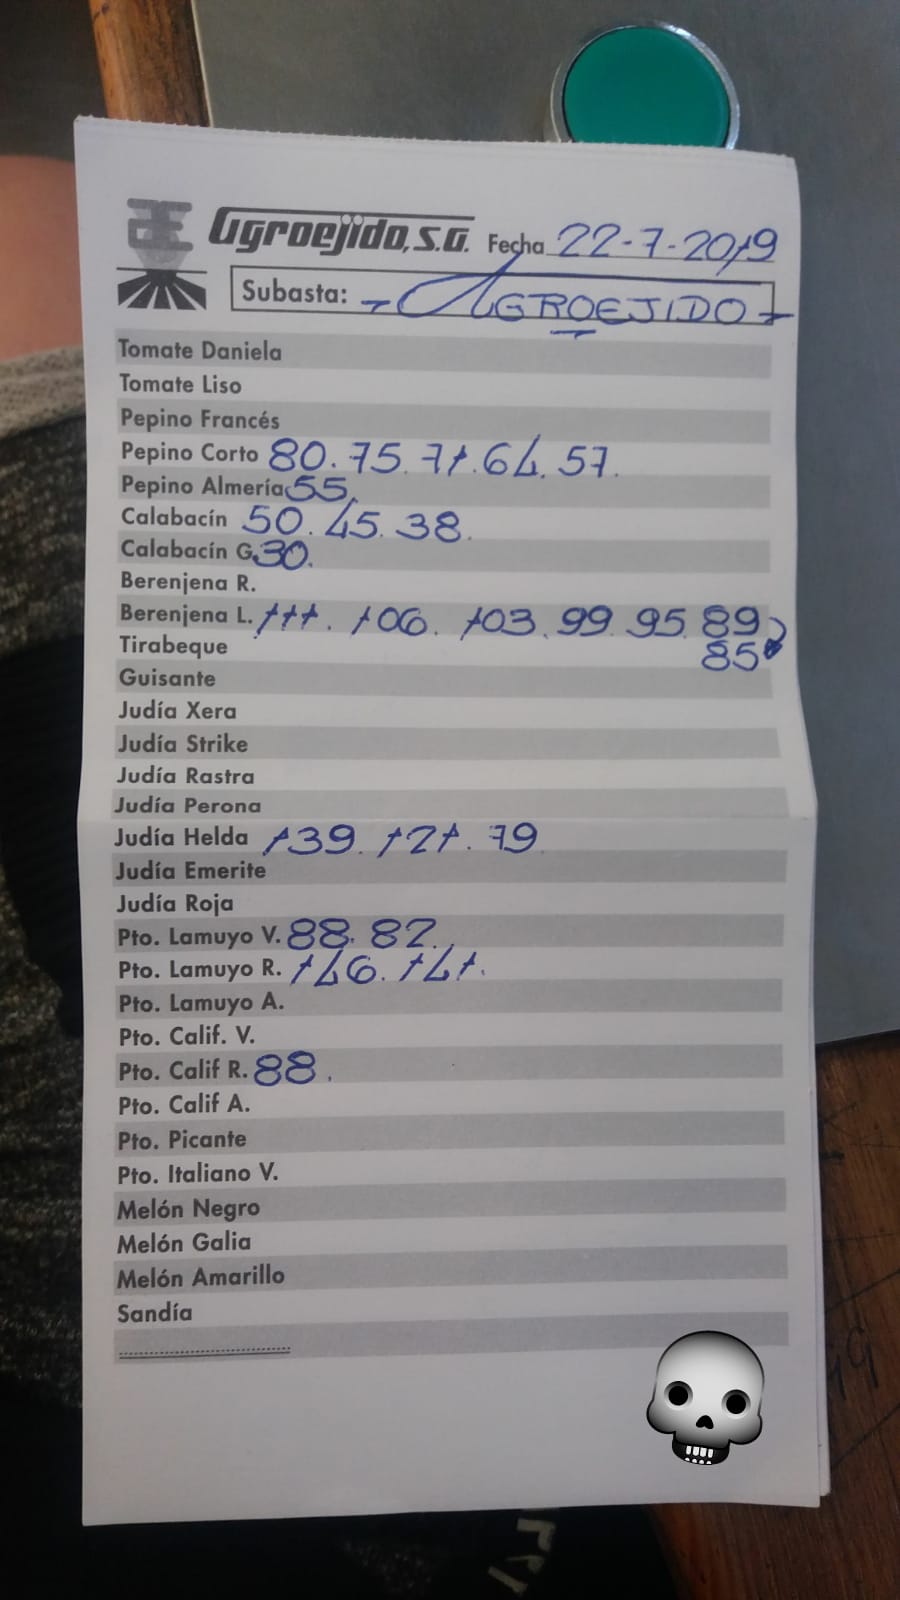 Agroejido, S.A. Fecha 22-7-2019
Subasta: - AGROEJIDO -
Tomate Daniela
Tomate Liso
Pepino Francés
Pepino Corto 80. 75. 71. 64. 57.
Pepino Almería 55.
Calabacín 50. 45. 38.
Calabacín G. 30.
Berenjena R.
Berenjena L. 111. 106. 103. 99. 95. 89
Tirabeque 85
Guisante
Judía Xera
Judía Strike
Judía Rastra
Judía Perona
Judía Helda 139. 121. 79
Judía Emerite
Judía Roja
Pto. Lamuyo V. 88. 82.
Pto. Lamuyo R. 146. 141.
Pto. Lamuyo A.
Pto. Calif. V.
Pto. Calif R. 88.
Pto. Calif A.
Pto. Picante
Pto. Italiano V.
Melón Negro
Melón Galia
Melón Amarillo
Sandía